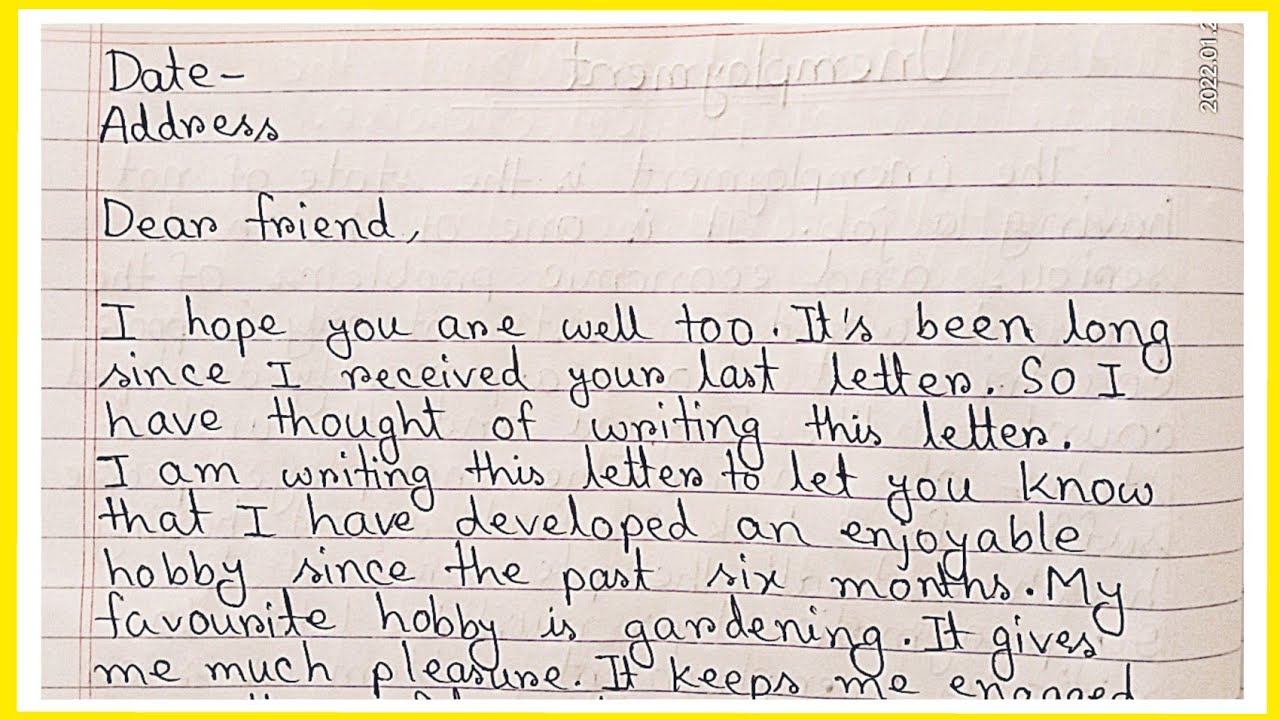 2022.01.2
Date-
Address
Dear friend,
I hope you are well too. It's been long
since I received your last letter. So I
have thought of writing this letter.
I am writing this letter to let you know
that I have developed an enjoyable
hobby since the past six months. My
favourite hobby is gardening. It gives
me much pleasure. It keeps me engaged